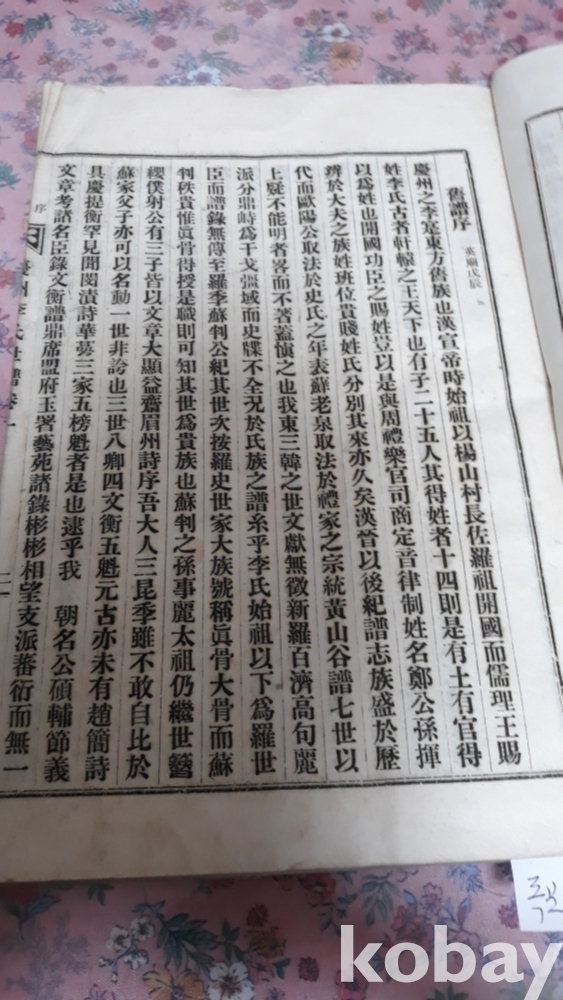 舊譜序 英廟戊辰
慶州之李寔東方舊族也漢宣帝時始祖以楊山村長佐羅祖開國而儒理王賜
姓李氏古者軒轅之王天下也有子二十五人其得姓者十四則是有土有官得
以爲姓也開國功臣之賜姓豈以是與周禮樂官司商定音律制姓名鄭公孫揮
辨於大夫之族姓班位貴賤姓氏分別其來亦久矣漢晉以後紀譜志族盛於歷
代而歐陽公取法於史氏之年表蘇老泉取法於禮家之宗統黃山谷譜七世以
上疑不能明者畧而不著蓋愼之也我東三韓之世文獻無徵新羅百濟高句麗
派分鼎峙爲干戈彊域而史牒不全况於氏族之譜系乎李氏始祖以下爲羅世
臣而譜錄無傳至羅季蘇判公紀其世次按羅史世家大族號稱眞骨大骨而蘇
判秩貴惟眞骨得授是職則可知其世爲貴族也蘇判之孫事麗太祖仍繼世簪
纓僕射公有三子皆以文章大顯益齋眉州詩序吾大人三昆季雖不敢自比於
蘇家父子亦可以名動一世非誇也三世八卿四文衡五魁元古亦未有趙簡詩
具慶提衡罕見聞閔漬詩華萼三家五榜魁者是也逮乎我 朝名公碩輔節義
文章考諸名臣錄文衡譜鼎席盟府玉署藝苑諸錄彬彬相望支派蕃衍而無一
序
慶州李氏世譜卷一
kobay